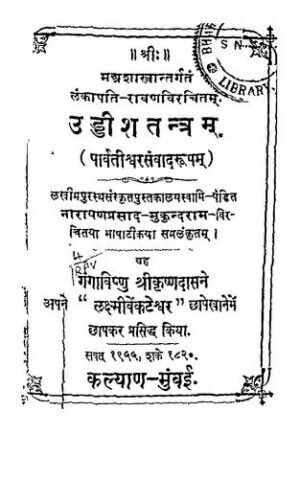 ॥ श्रीः ॥
मन्त्रशास्त्रान्तर्गतं
लंकापति-रावणविरचितम्.
उड्डीशतन्त्रम्.
(पार्वतीश्वरसंवादरूपम्)
लखीमपुरस्थसंस्कृतपुस्तकालयस्वामि-पंडित
नारायणप्रसाद-मुकुन्दराम-विर-
चितया भाषाटीकया समलंकृतम् ।
यह
गंगाविष्णु श्रीकृष्णदासने
अपने “लक्ष्मीवेंकटेश्वर” छापेखानेमें
छापकर प्रसिद्ध किया.
संवत् १९५५, शके १८२०.
कल्याण-मुंबई.
S N
LIBRARY